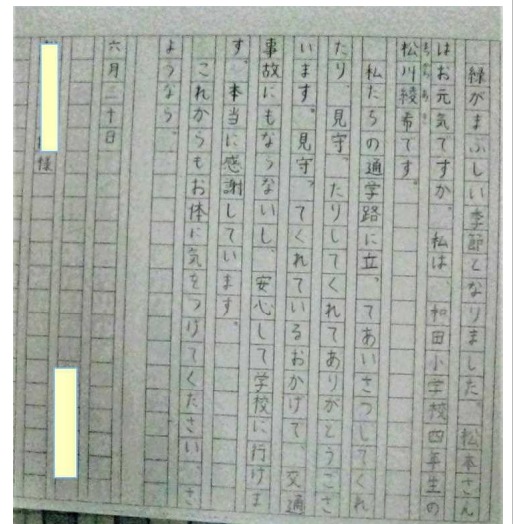 緑がまぶしい季節となりました。松本さん
はお元気ですか。私は、和田小学校四年生の
松川綾希です。
私たちの通学路に立ってあいさつしてくれ
たり、見守ったりしてくれてありがとうござ
います。見守ってくれているおかげで、交通
事故にもならないし、安心して学校に行けま
す。本当に感謝しています。
これからもお体に気をつけてください。さ
ようなら。
六月二十日
様